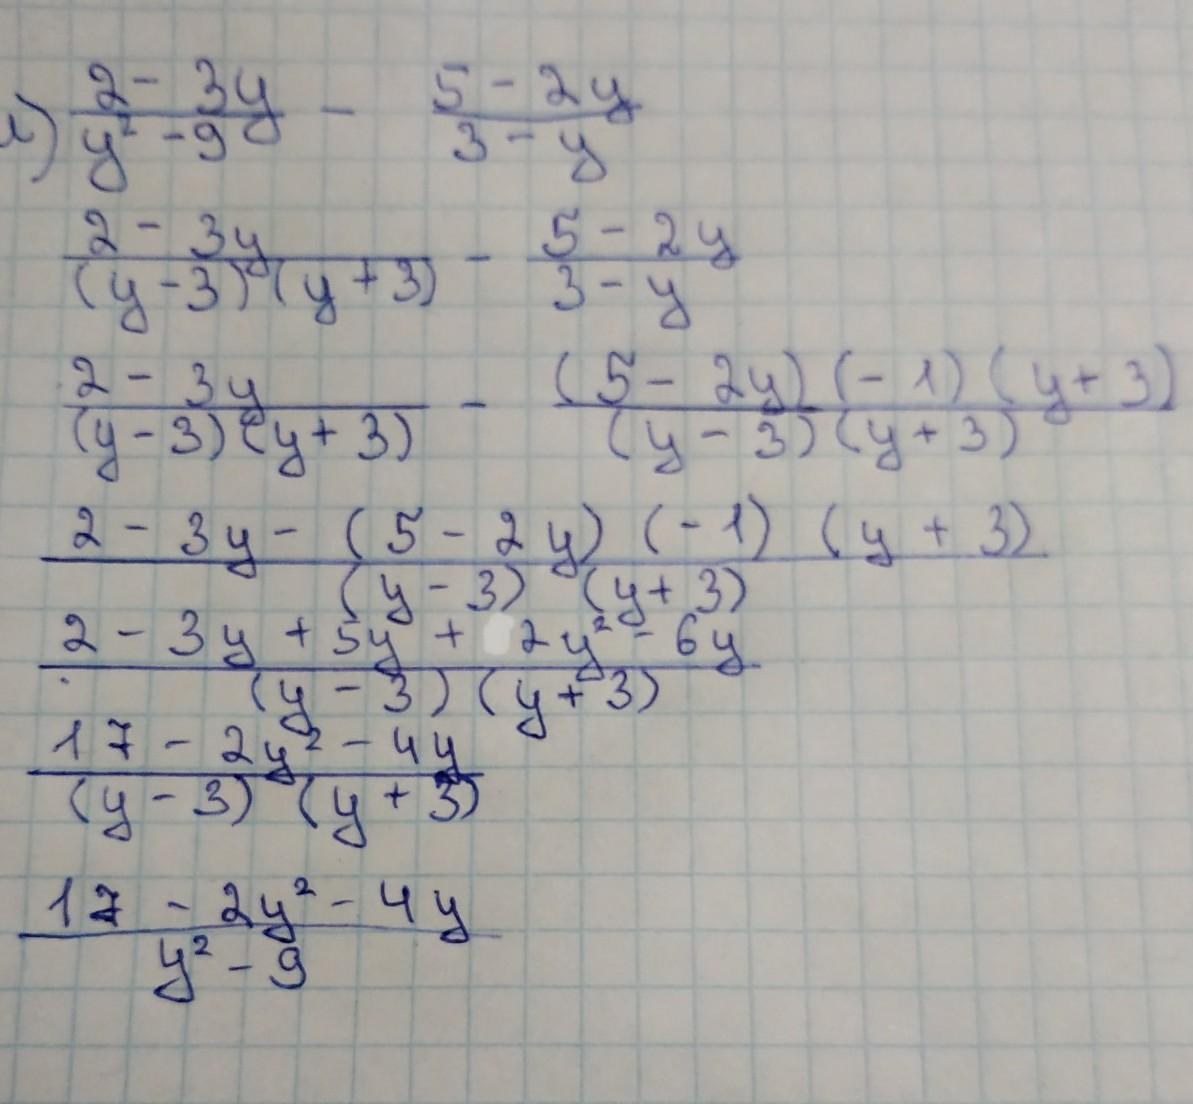 2 - 3y / y² - 9 - 5 - 2y / 3 - y
2 - 3y / (y - 3) (y + 3) - 5 - 2y / 3 - y
2 - 3y / (y - 3) (y + 3) - (5 - 2y) (-1) (y + 3) / (y - 3) (y + 3)
2 - 3y - (5 - 2y) (-1) (y + 3) / (y - 3) (y + 3)
2 - 3y + 5y + 2y² - 6y / (y - 3) (y + 3)
17 - 2y² - 4y / (y - 3) (y + 3)
17 - 2y² - 4y / y² - 9